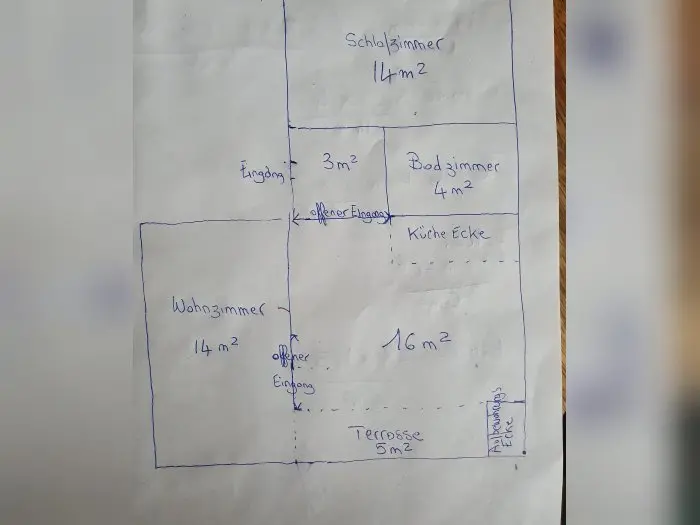 Schlafzimmer
14 m²
Eingang
3 m²
Badzimmer
4 m²
offener Eingang
Küche Ecke
Wohnzimmer
14 m²
16 m²
offener
Eingang
Terrasse
5 m²
Aufbewahrungs
Ecke